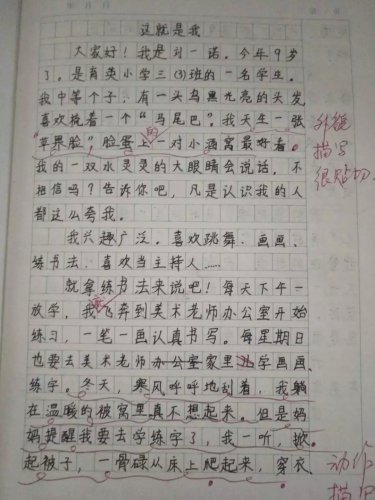 这就是我
大家好！我是刘一诺。今年9岁
了。是育英小学三(3)班的一名学生。
我中等个子，有一头乌黑光亮的头发，
喜欢梳着一个“马尾巴”。我天生一张
“苹果脸”，脸蛋上的一对小酒窝最好看。
外貌
描写
很贴切
我的一双水灵灵的大眼睛会说话，不
相信吗？告诉你吧，凡是认识我的人
都这么夸我。
我兴趣广泛。喜欢跳舞、画画、
练书法、喜欢当主持人……
就拿练书法来说吧！每天下午一
放学，我飞奔到美术老师办公室开始
练习，一笔一画认真书写。每星期日
也要去美术老师办公室家里学画画、
练字。冬天，寒风呼呼地刮着，我躺
在温暖的被窝里真不想起来。但是妈
妈提醒我要去学练字了，我一听，掀
起被子，一骨碌从床上爬起来，穿衣、
动作
描写